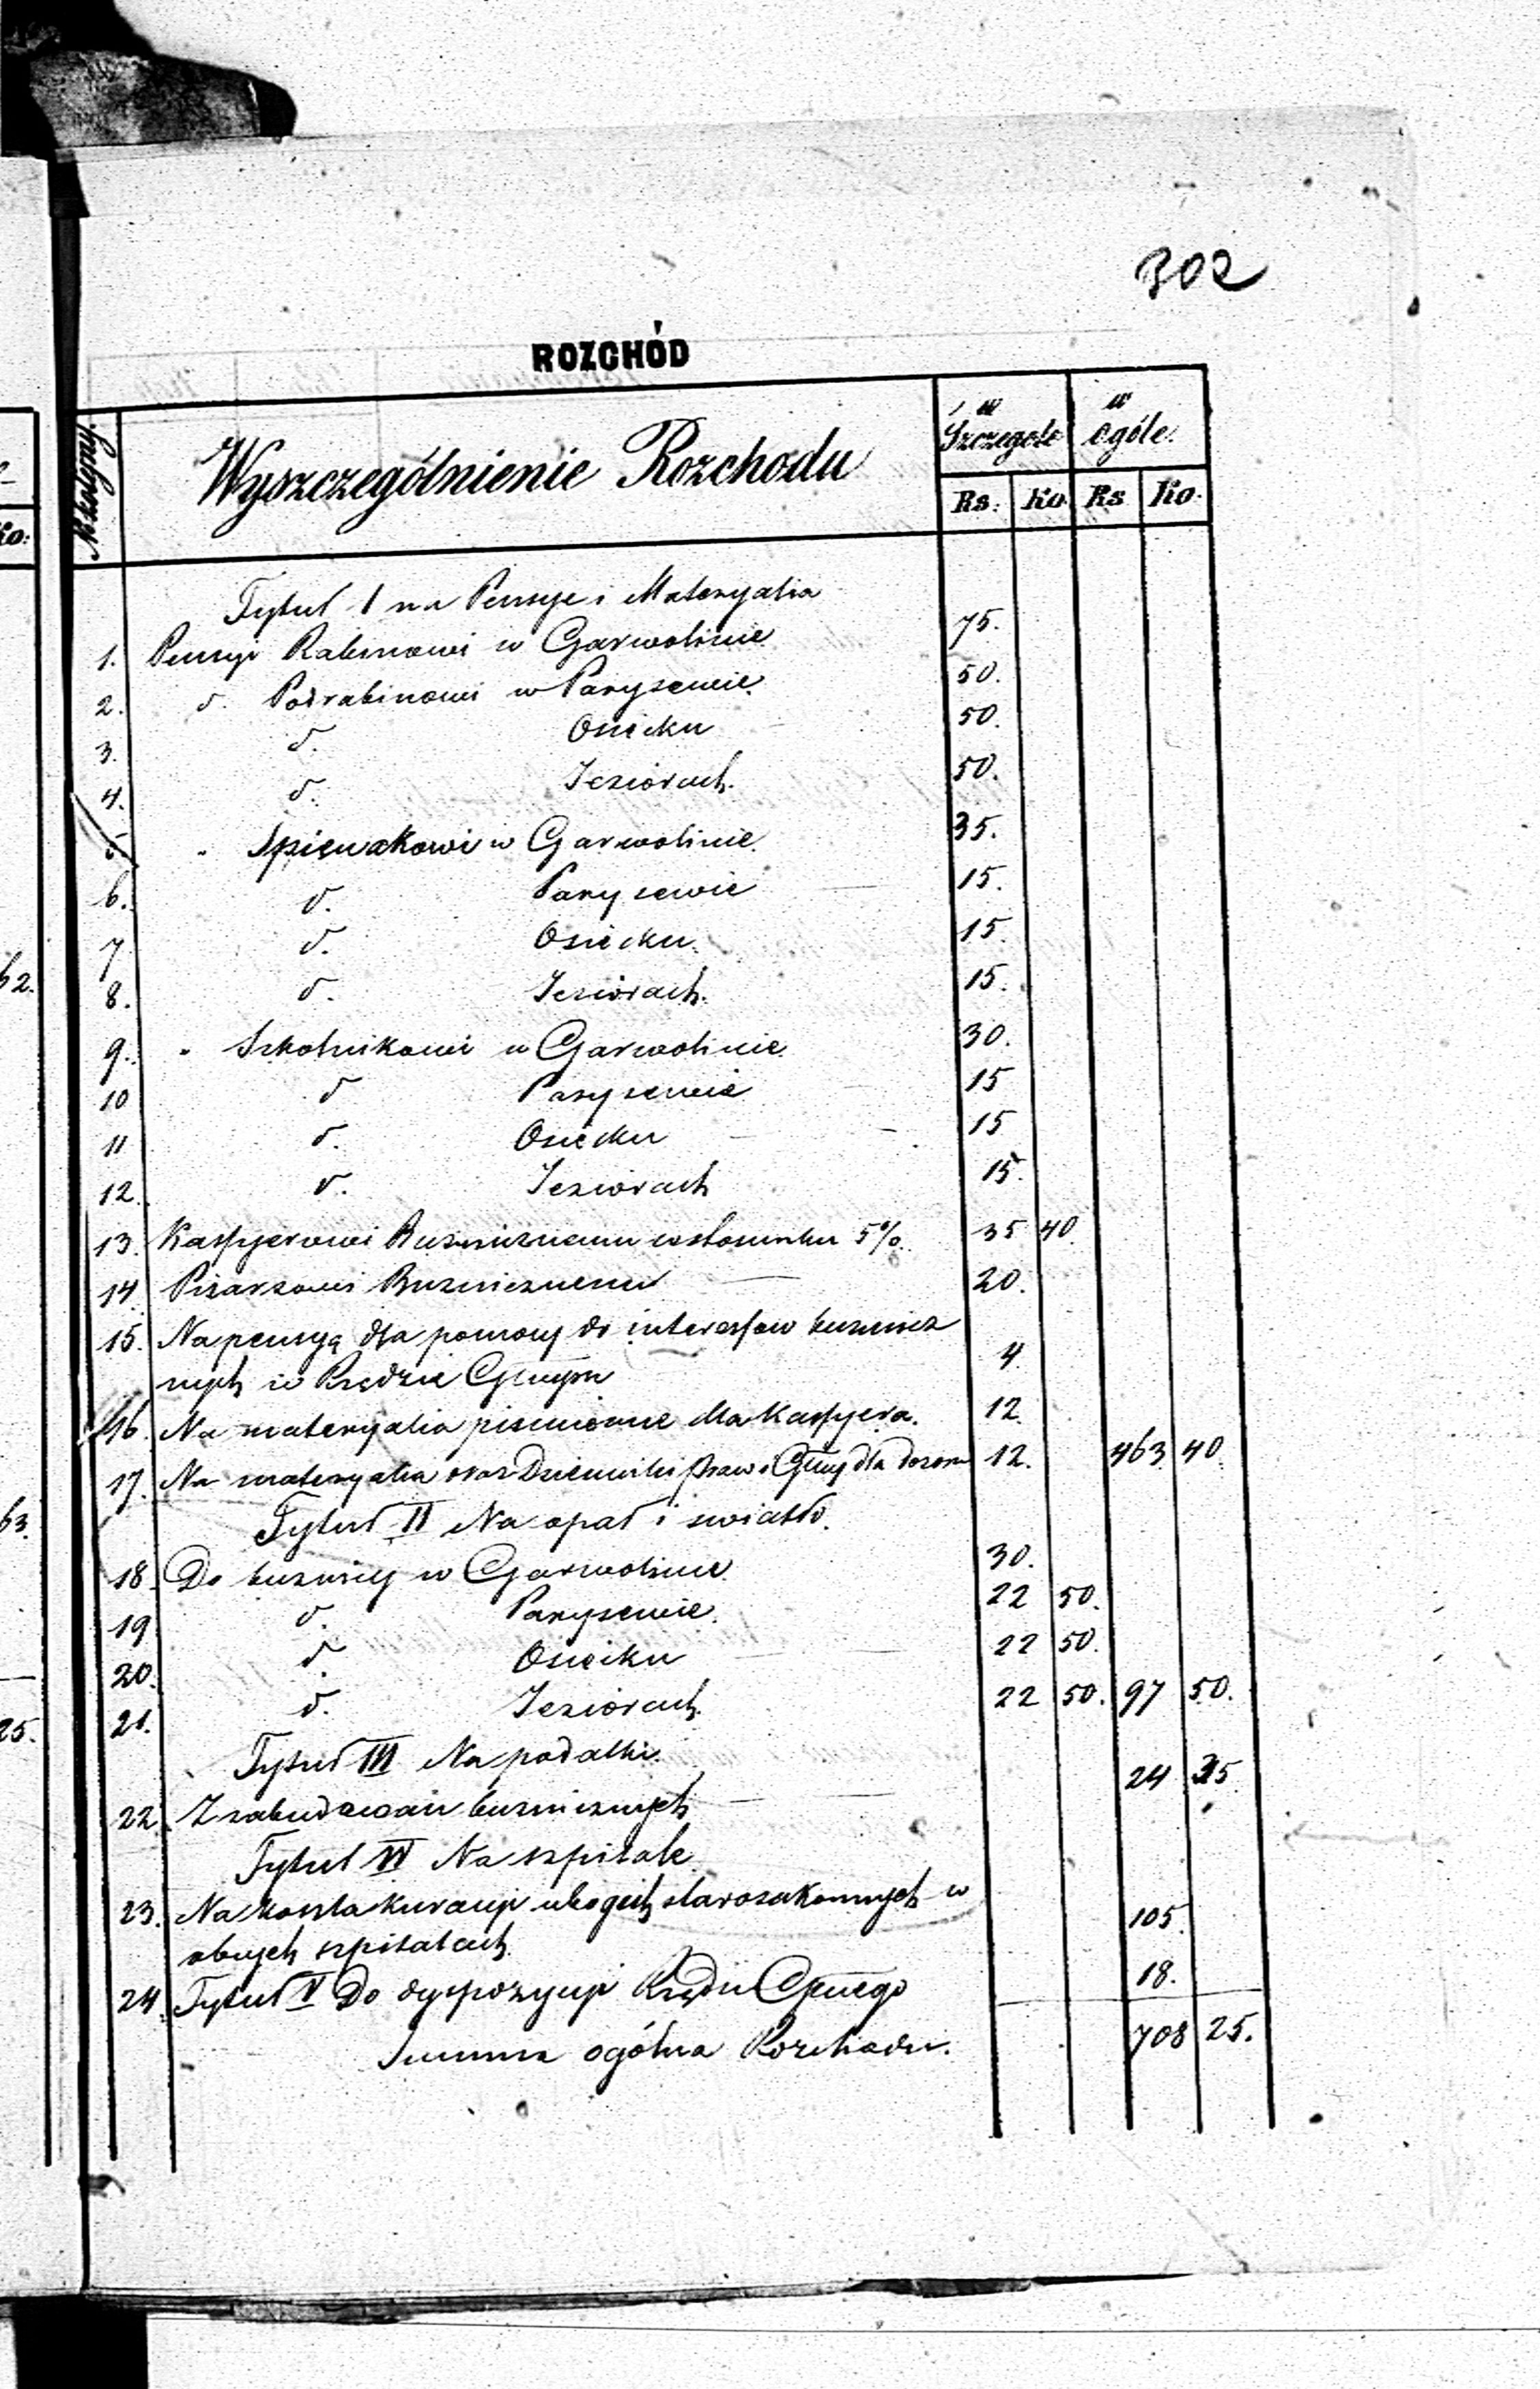 302
ROZCHÓD
Wyszczególnienie Rozchodu
w Szczegole
w ogóle.
Rs. Ko Rs Ko.
Ko:
Tytuł I na Pensye i Materyalia
1. Pensyi Rabinowi w Garwolinie 75.
2. d. Podrabinowi w Parysewie 50.
3. d. Osiecku 50.
4. d. Jeziorach. 50.
5. " Spiewakowi w Garwolinie. 35.
6. d. Parysewie 15.
7 d. Osiecku. 15.
8. d. Jeziorach. 15.
9. " Szkolnikowi w Garwolinie 30.
10 d Parysewie 15
11 d. Osiecku 15
12. d. Jeziorach 15.
13. Kassyerowi Bużnicznemu w stosunku 5%. 35 40
14 Pisarzowi Bużnicznemu 20.
15. Na pensyą dla pomocy do interessow bużnicz
nych w Rzędzie Gmyn 4
16. Na materyalia pismienne dla Kassyera. 12
17. Na materyalia oraz Dzienniki Praw i Gbny dla dozoru 12. 463 40
Tytuł II Na opał i swiatło.
18. Do bużnicy w Garwolinie 30.
19 d. Parysewie. 22 50.
20. d. Osiecku 22 50.
21. d. Jeziorach. 22 50. 97 50.
Tytuł III Na podatki.
22. Z zabudowań bużnicznych 24 35
Tytuł IV Na szpitale
23. Na koszta kuracyi ubogich starozakonnych w
obcych szpitalach. 105.
24. Tytuł V Do dyspozycyi Rządu Gbnego 18.
Summa ogólna Rozchodu. 708 25.
62.
63.
25.